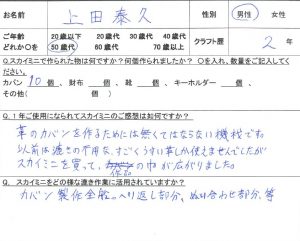 お名前 上田泰久 性別 男性 女性
ご年齢 20歳以下 20歳代 30歳代 40歳代
どれか〇を 50歳代 60歳代 70歳以上 クラフト歴 2年
Q.スカイミニで作られた物は何ですか？何個作られましたか？ 〇を入れ、数量をご記入してください。
カバン 10個、 財布 個、 靴 個、 キーホルダー 個、
その他( 個)
Q. 1年ご使用になられてスカイミニのご感想は如何ですか？
革のカバンを作るためには無くてはならない機械ですね
以前は漉きの不用な、すごくうすい革しか使えませんでしたが
スカイミニを買って、作品の巾が広がりました。
Q. スカイミニをどの様な漉き作業に活用されていますか？
カバン製作全般。へり返し部分、ぬい合わせ部分、等